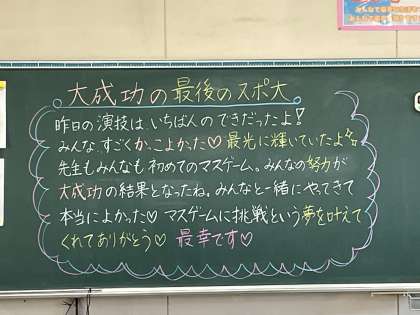 大成功の最後のスポ大
昨日の演技は、いちばんのできだったよ!
みんな、すごくかっこよかった♡ 最光に輝いていたよ
先生もみんなも初めてのマスゲーム。みんなの努力が
大成功の結果となったね。みんなと一緒にやってきて
本当によかった♡ マスゲームに挑戦という夢を叶えて
くれてありがとう♡ 最幸です♡